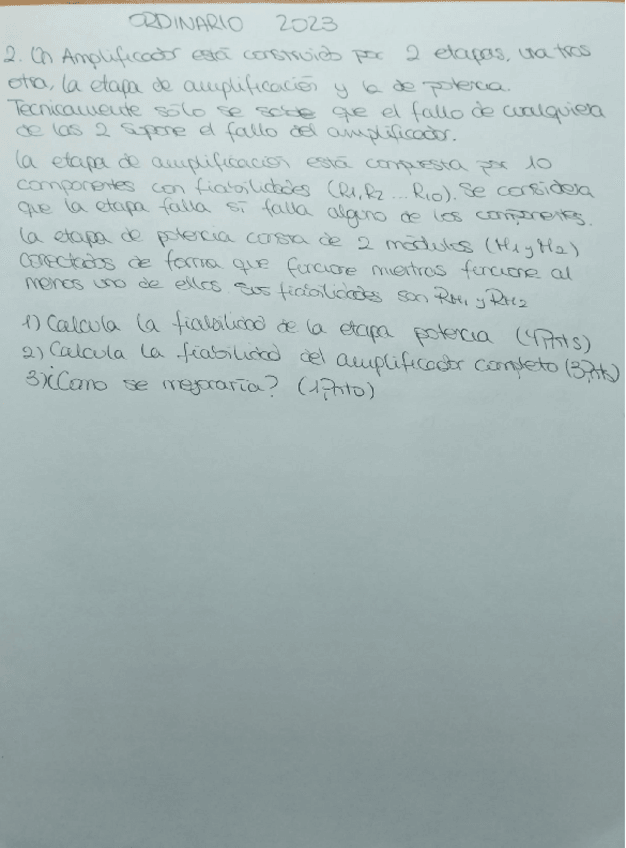 ORDINARIO 2023
2. Un Amplificador está construido por 2 etapas, una tras
otra, la etapa de amplificación y la de potencia.
Tecnicamente sólo se sabe que el fallo de cualquiera
de las 2 supone el fallo del amplificador.
La etapa de amplificación está compuesta por 10
componentes con fiabilidades (R1, R2 ... R10). Se considera
que la etapa falla si falla alguno de los componentes.
La etapa de potencia consta de 2 módulos (H1 y H2)
conectados de forma que funcione mientras funcione al
menos uno de ellos sus fiabilidades son RH1 y RH2
1) Calcula la fiabilidad de la etapa potencia (4Pnts)
2) Calcula la fiabilidad del amplificador completo (3Pnts)
3) ¿Como se mejoraría? (1Pnto)